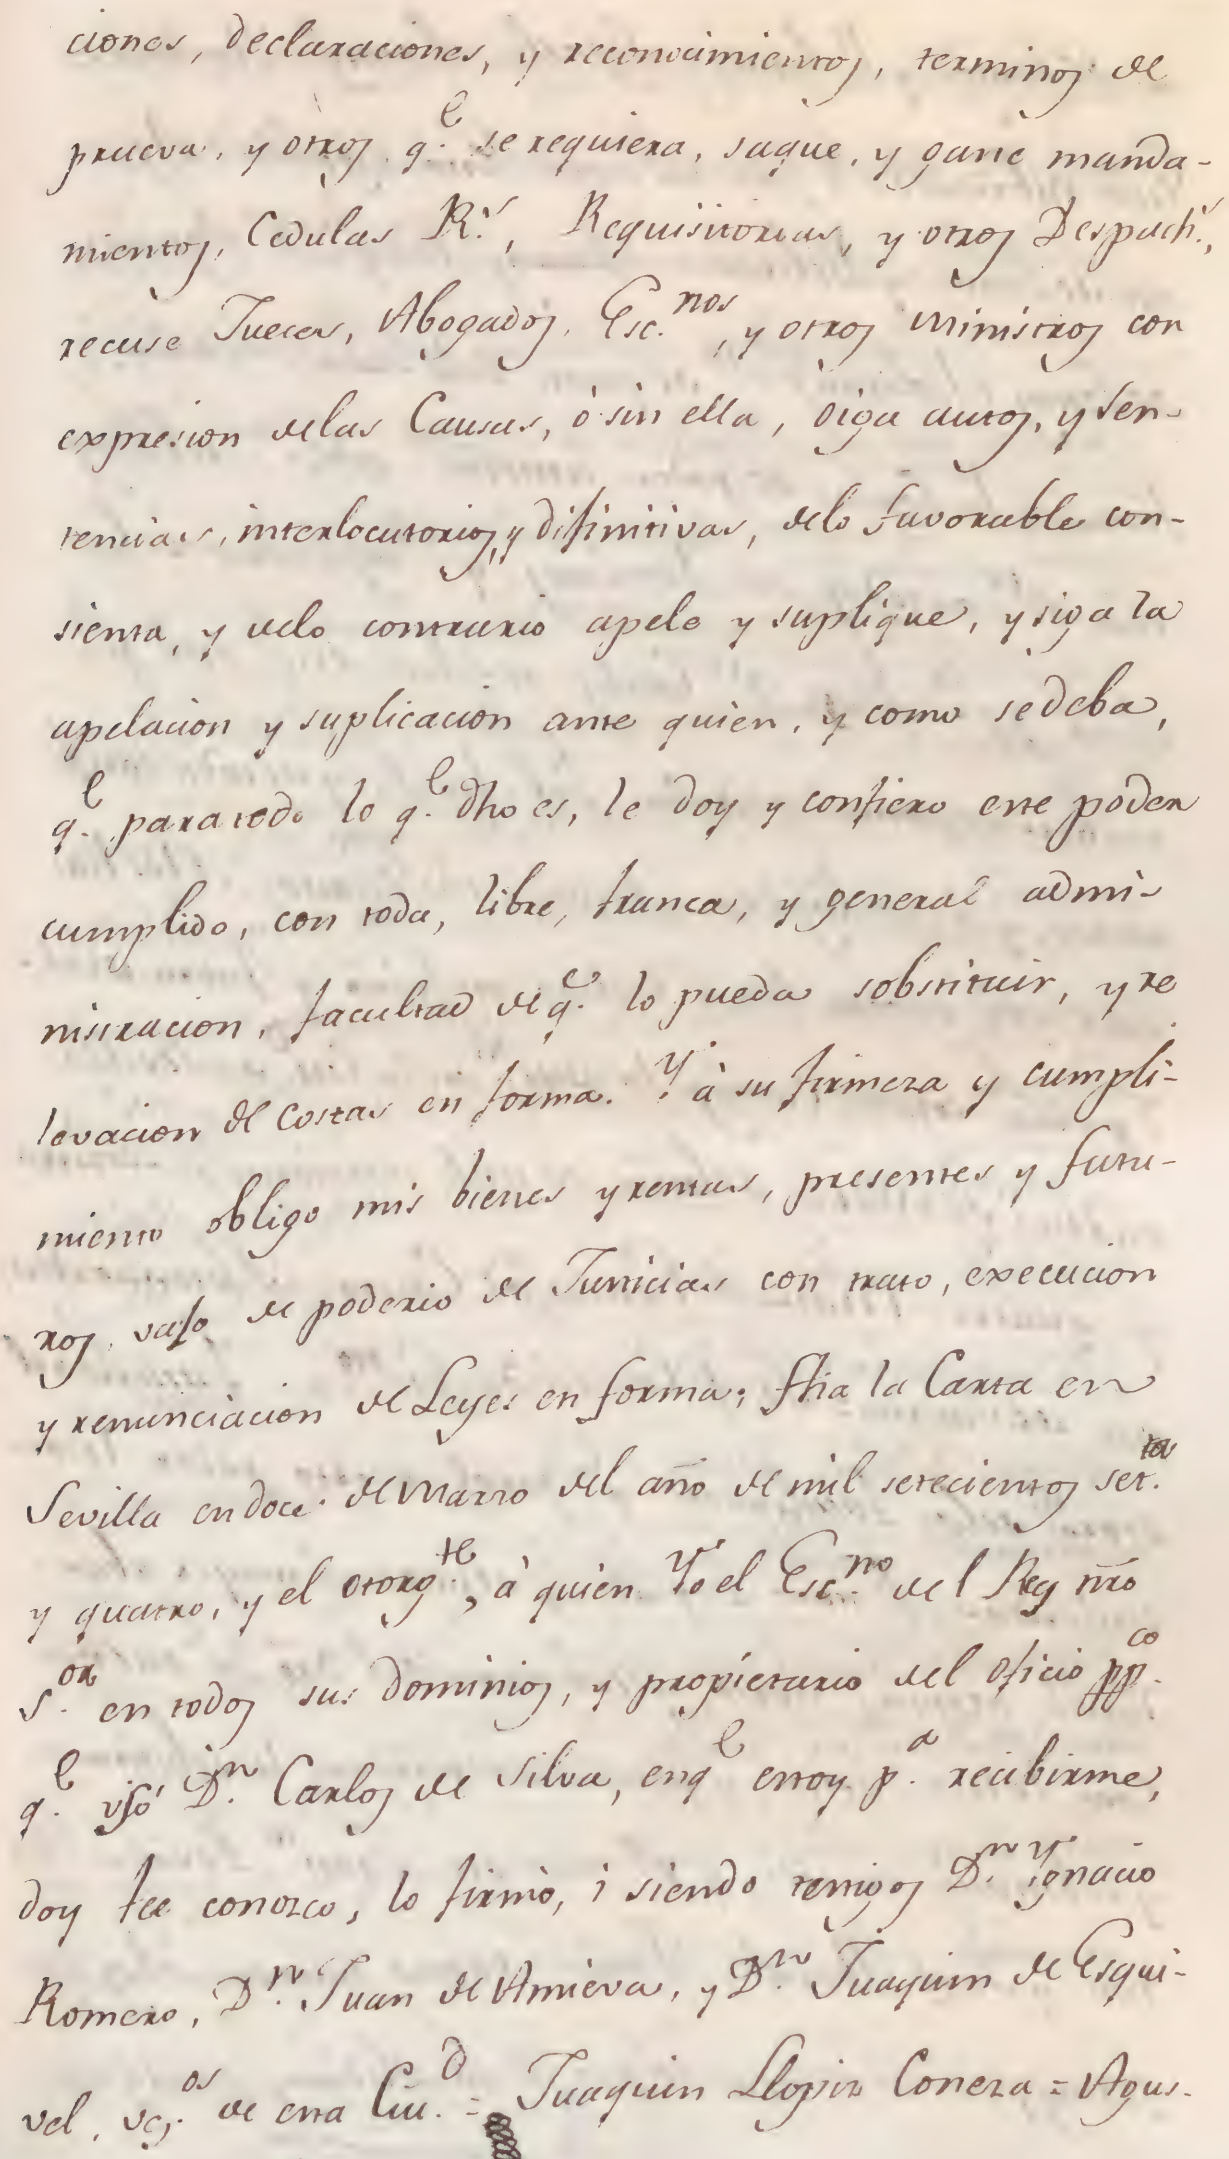 ciones, declaraciones, y reconocimientos, terminos de
prueva, y otros q.e se requiera, saque, y gane manda-
mientos, Cedulas R.s, Requisitorias, y otros Despach.s,
recuse Jueces, Abogados, Esc.nos, y otros Ministros con
expresion delas Causas, ò sin ella, òiga autos, y Sen-
tencias, interlocutorios, y difinitivas, delo favorable con-
sienta, y delo contrario apele y suplique, y siga la
apelacion y suplicacion ante quien, y como sedeba,
q.e paratodo lo q.e dho es, le doy y confiero este poder
cumplido, con toda, libre, franca, y general admi-
nistracion, facultad de q.e lo pueda sobstituir, y re
levacion de costas en forma. Y à su firmeza y cumpli-
miento obligo mis bienes y rentas, presentes y futu-
ros, vajo de poderio de Justicias con trato, execucion
y renunciacion de Leyes en forma; fha la Carta en
Sevilla en doce de Marzo del año de mil setecientos set.ta
y quatro, y el otorg.te, à quien Yo el Esc.no del Rey nro
S.or en todos sus dominios, y propietario del oficio pp.co
q.e usó D.n Carlos de Silva, enq.e estoy p.a recibirme,
doy fee conozco, lo firmò, i siendo testigos D.n Ygnacio
Romero, D.n Juan de Amieva, y D.n Juaquin de Esqui-
vel, vez.os de esta Ciu.d = Juaquin Llopis Conesa = Agus-